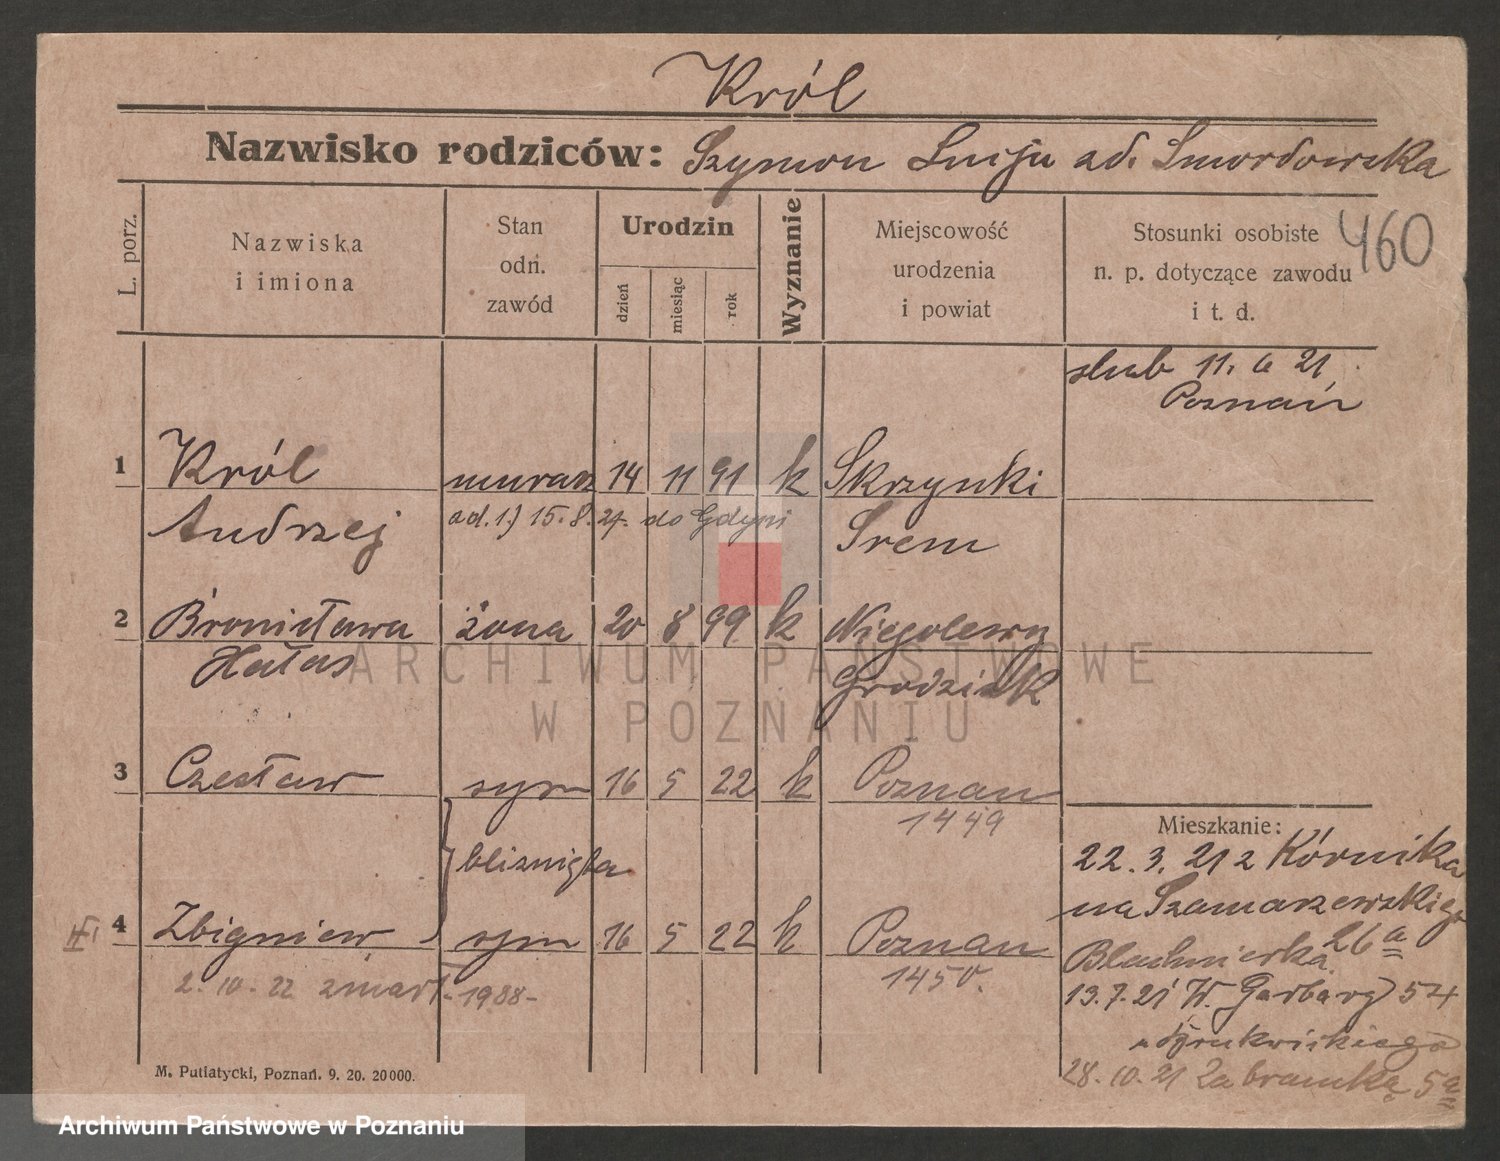 Król
Nazwisko rodziców: Szymon Lucja ad. Smordowska
L. porz.
Nazwiska
i imiona
Stan
odn.
zawód
Urodzin
dzień
miesiąc
rok
Wyznanie
Miejscowość
urodzenia
i powiat
Stosunki osobiste
n. p. dotyczące zawodu
i t. d.
460
slub 11. 6 21
Poznań
1 Król murarz 14 11 91 k Skrzynki
Andrzej ad. 1.) 15. 8. 27. do Gdyni Srem
2 Bronisława żona 20 8 99 k Niegolewo
Hałas Grodzisk
3 Czesław syn 16 5 22 k Poznan
1449
bliznięta
4 Zbigniew syn 16 5 22 k Poznan
2. 10. 22 zmarł - 1988 - 1450.
Mieszkanie:
22. 3. 21 z Kórnika
na Szamarzewskiego
26a
13. 7. 21 W. Garbary 54
28. 10. 21 Za bramką 5a
M. Putiatycki, Poznań. 9. 20. 20000.
ARCHIWUM PAŃSTWOWE
W POZNANIU
Archiwum Państwowe w Poznaniu